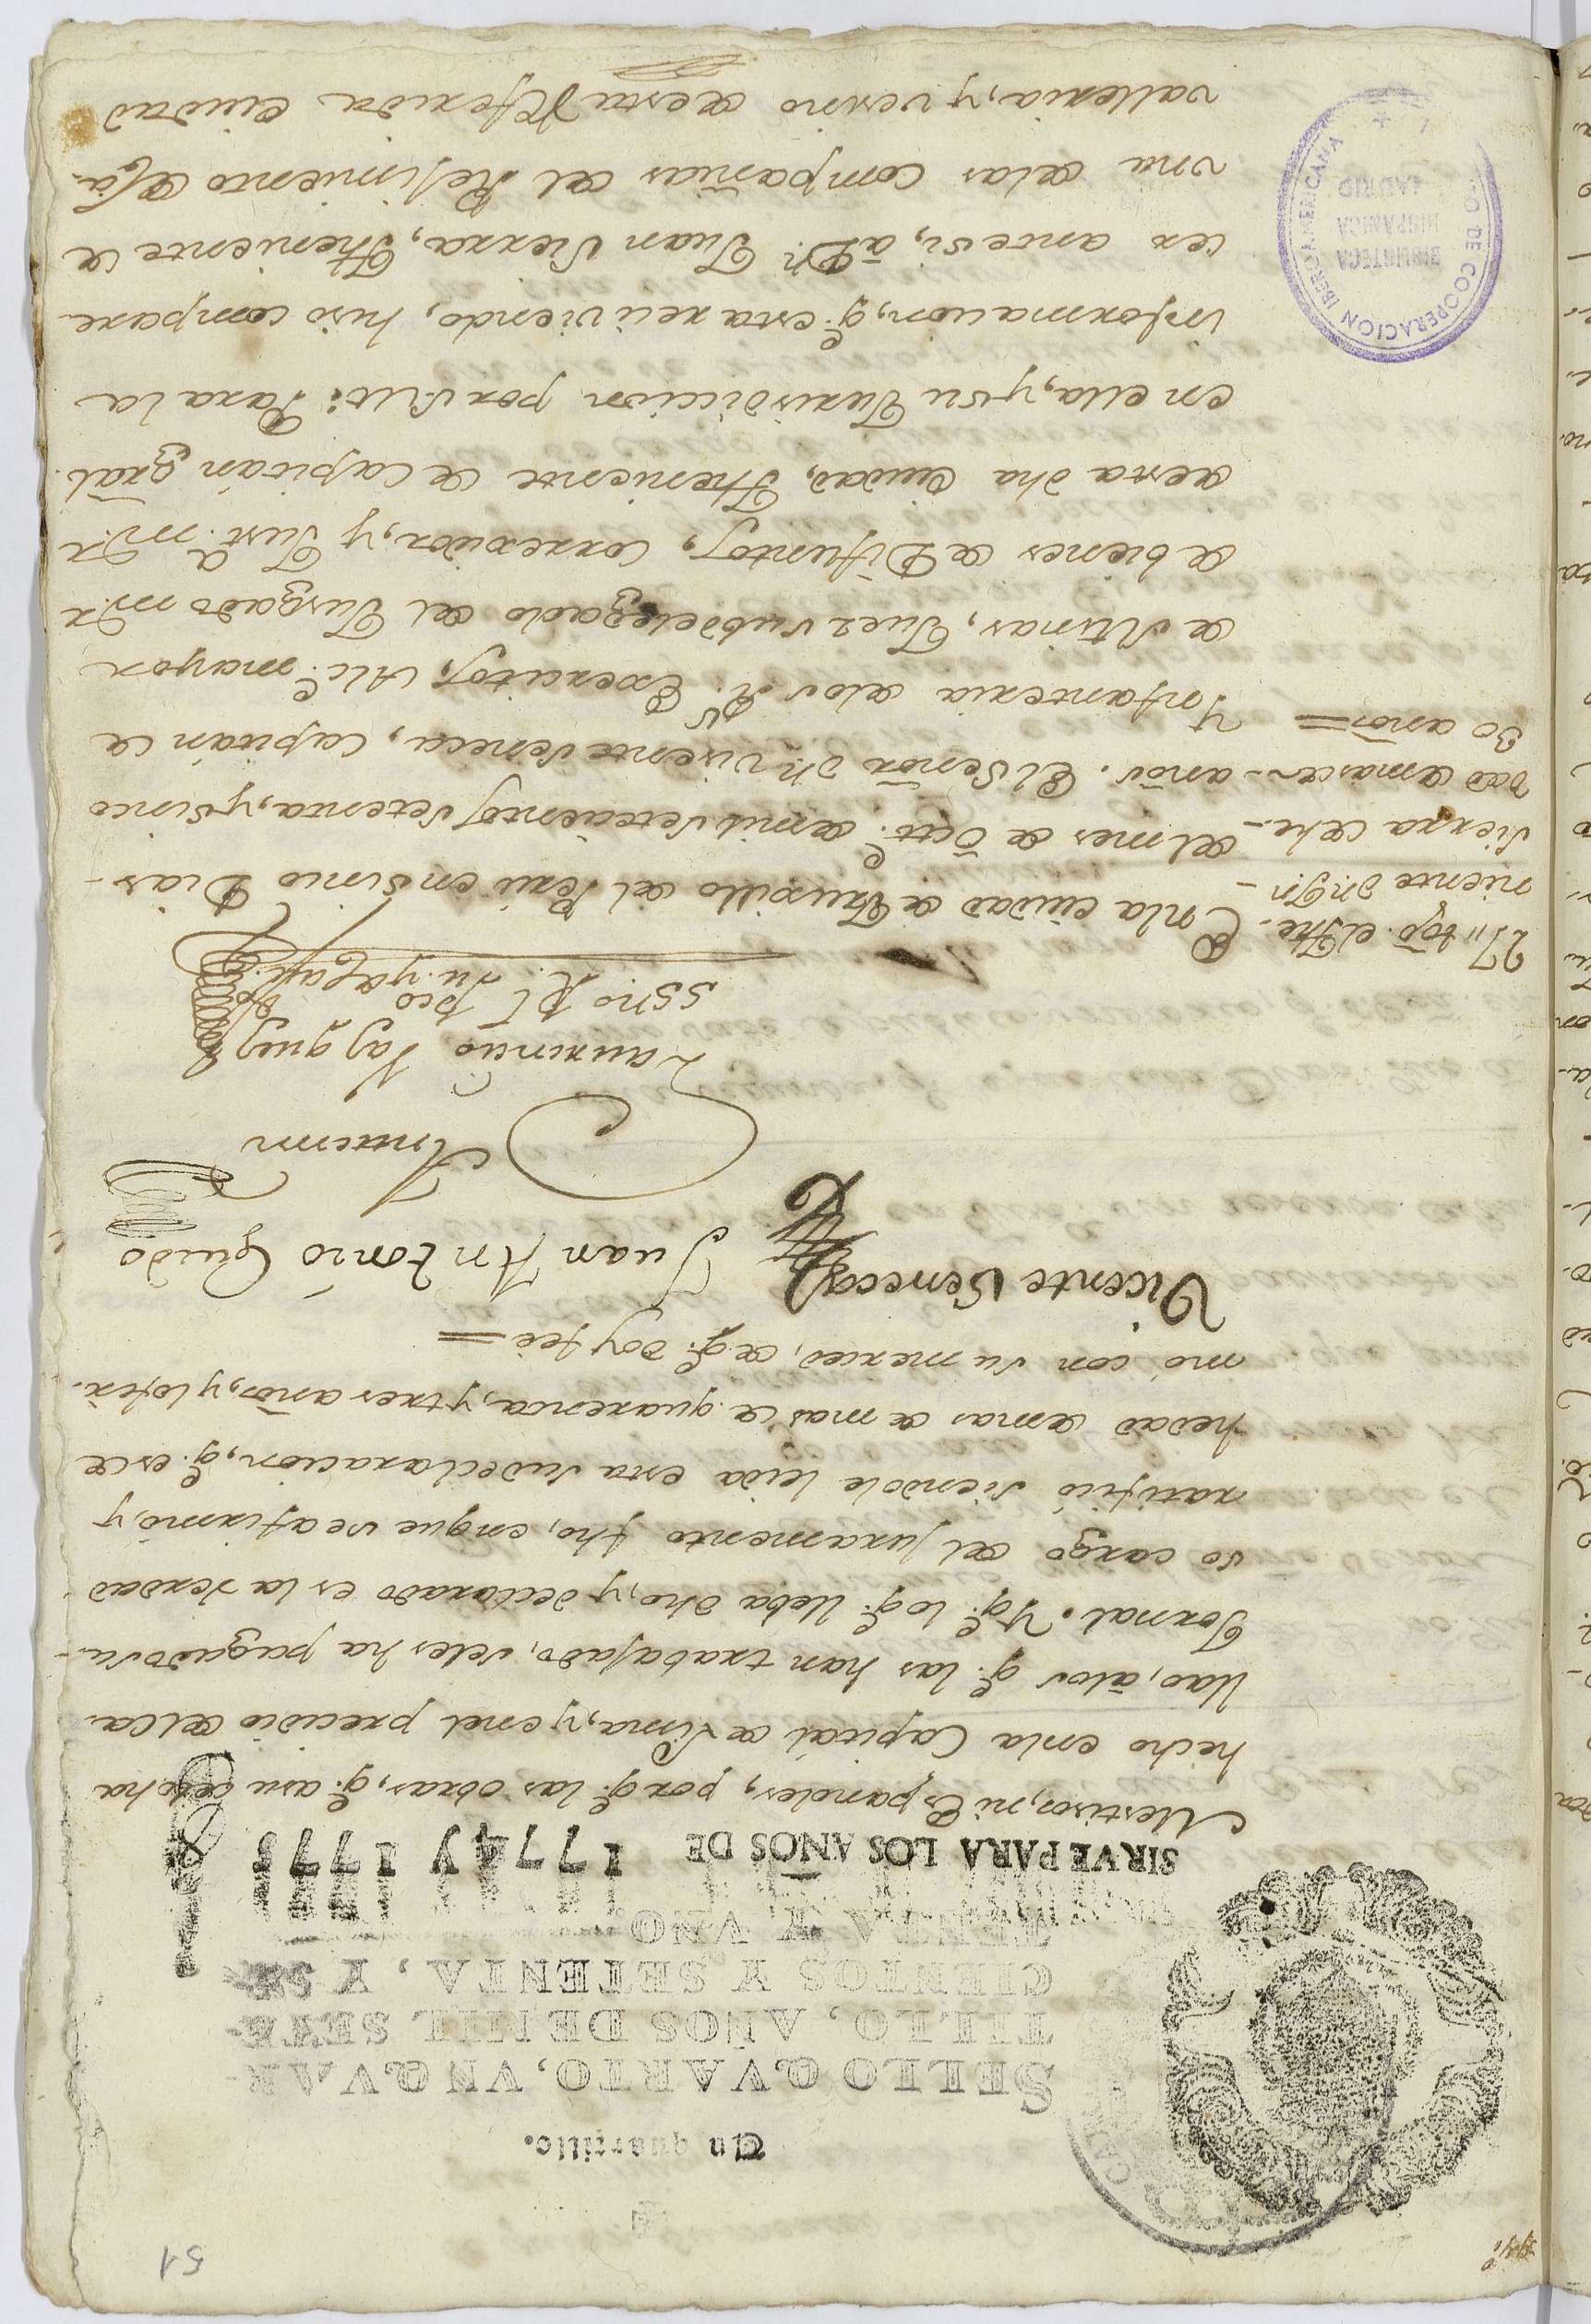 51
Un quartillo.
SELLO QVARTO, VN QVAR-
TILLO, AÑOS DE MIL SETE-
CIENTOS Y SETENTA, Y SE-
TENTA Y VNO
SIRVE PARA LOS AÑOS DE 1774 y 1775
Mestisos, ni Españoles, porq.e las obras, q.e asu costo ha
hecho enla Capital de Lima, y enel precidio del Ca-
llao, álos q.e las han trabajado, seles ha pagado su
Jornal. Y q.e lo q.e lleba dho, y declarado es la verdad
so cargo del juramento fho, enque se afirmó, y
ratificó siendole leida esta su declaracion, q.e es de
hedad demas de quarenta, y tres años, y lo fir-
mó con su merced, de q.e doy feé =
Vicente Seneca
Juan Antonio Guido
Antemi
Laurencio Vasques
SSno Rl. pco
27,, tgo. el The-
niente Dn. Jn.
Sierra de he-
dad de mas de
30 años =
En la ciudad de Truxillo del Perú en sinco Dias
del mes de Oct.e de mil setecientos setenta, y sinco
años. El Señor Dn. Visente Seneca, Capitán de
Ynfanteria delos R.s Exercitos, Alc.e mayor
de Minas, Juez subdelegado del Jusgado m.or
de bienes de Difuntos, Correxidor, y Just.a m.or
de esta dha Ciudad, Theniente de Capitán gral.
en ella, y su Jurisdiccion por S.M.: Para la
informacion, q.e esta reciviendo, hiso compare-
cer antesi, á Dn. Juan Sierra, Theniente de
una delas compañias del Reximiento de Ca-
valleria, y vesino de esta Referida Ciudad
DE COOPERACION IBEROAMERICANA
BIBLIOTECA
HISPANICA
MADRID